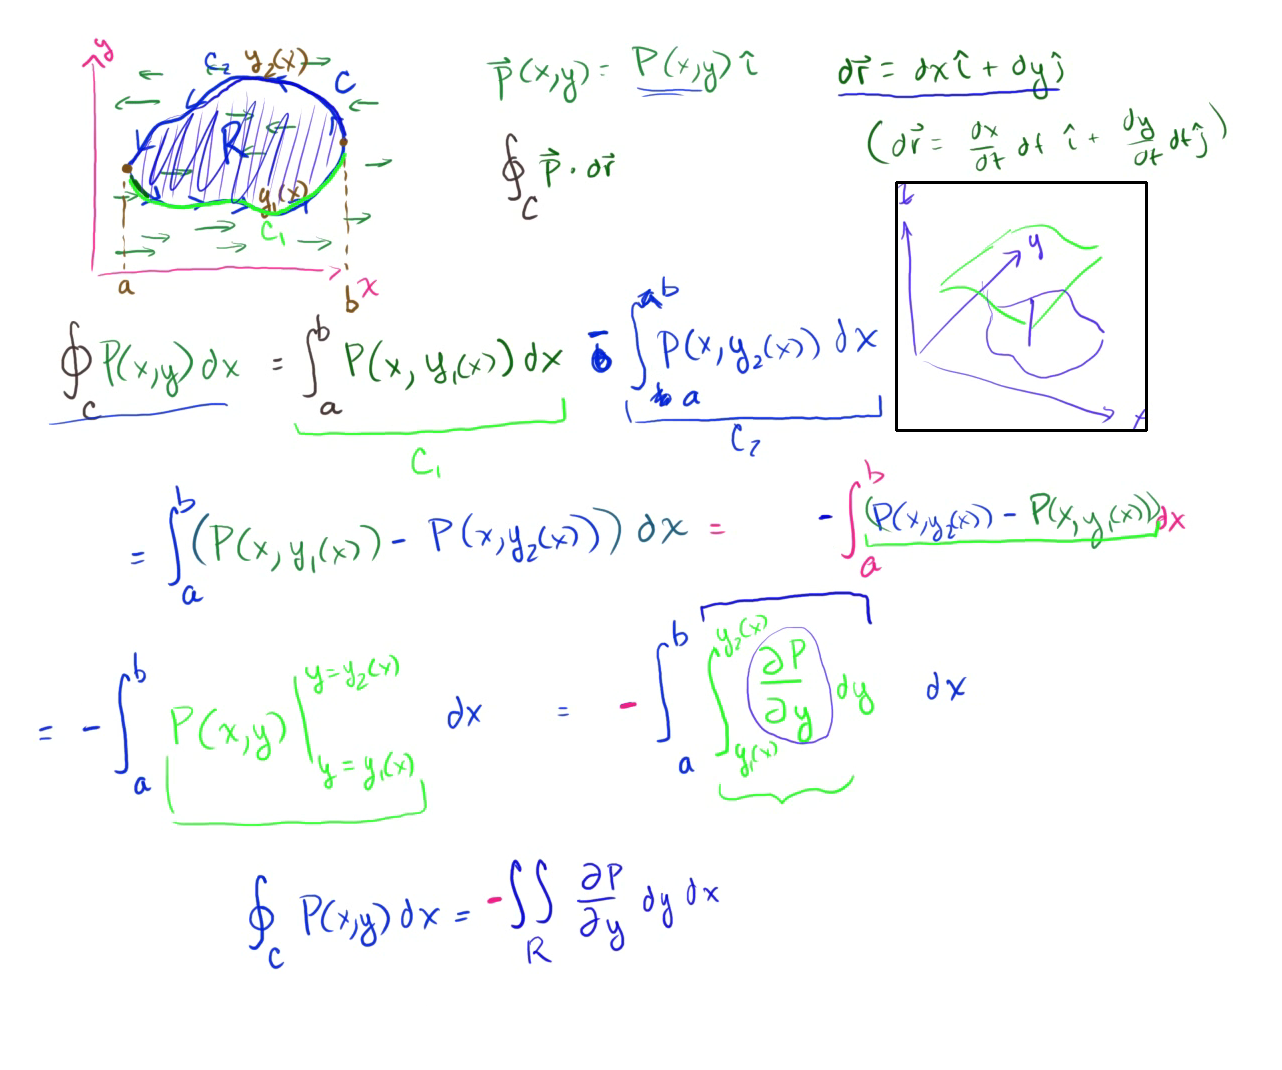 y
C₂ y₂(x)
C
R
y₁(x)
C₁
a
b x
P⃗(x,y) = P(x,y) î
dr⃗ = dx î + dy ĵ
(dr⃗ = dx/dt dt î + dy/dt dt ĵ)
∮_C P⃗ · dr⃗
y
x
∮_C P(x,y) dx = ∫_a^b P(x, y₁(x)) dx - ∫_a^b P(x, y₂(x)) dx
C₁ C₂
= ∫_a^b (P(x, y₁(x)) - P(x, y₂(x))) dx = - ∫_a^b (P(x, y₂(x)) - P(x, y₁(x))) dx
= - ∫_a^b P(x,y) |_{y = y₁(x)}^{y = y₂(x)} dx = - ∫_a^b ∫_{y₁(x)}^{y₂(x)} ∂P/∂y dy dx
∮_C P(x,y) dx = - ∬_R ∂P/∂y dy dx